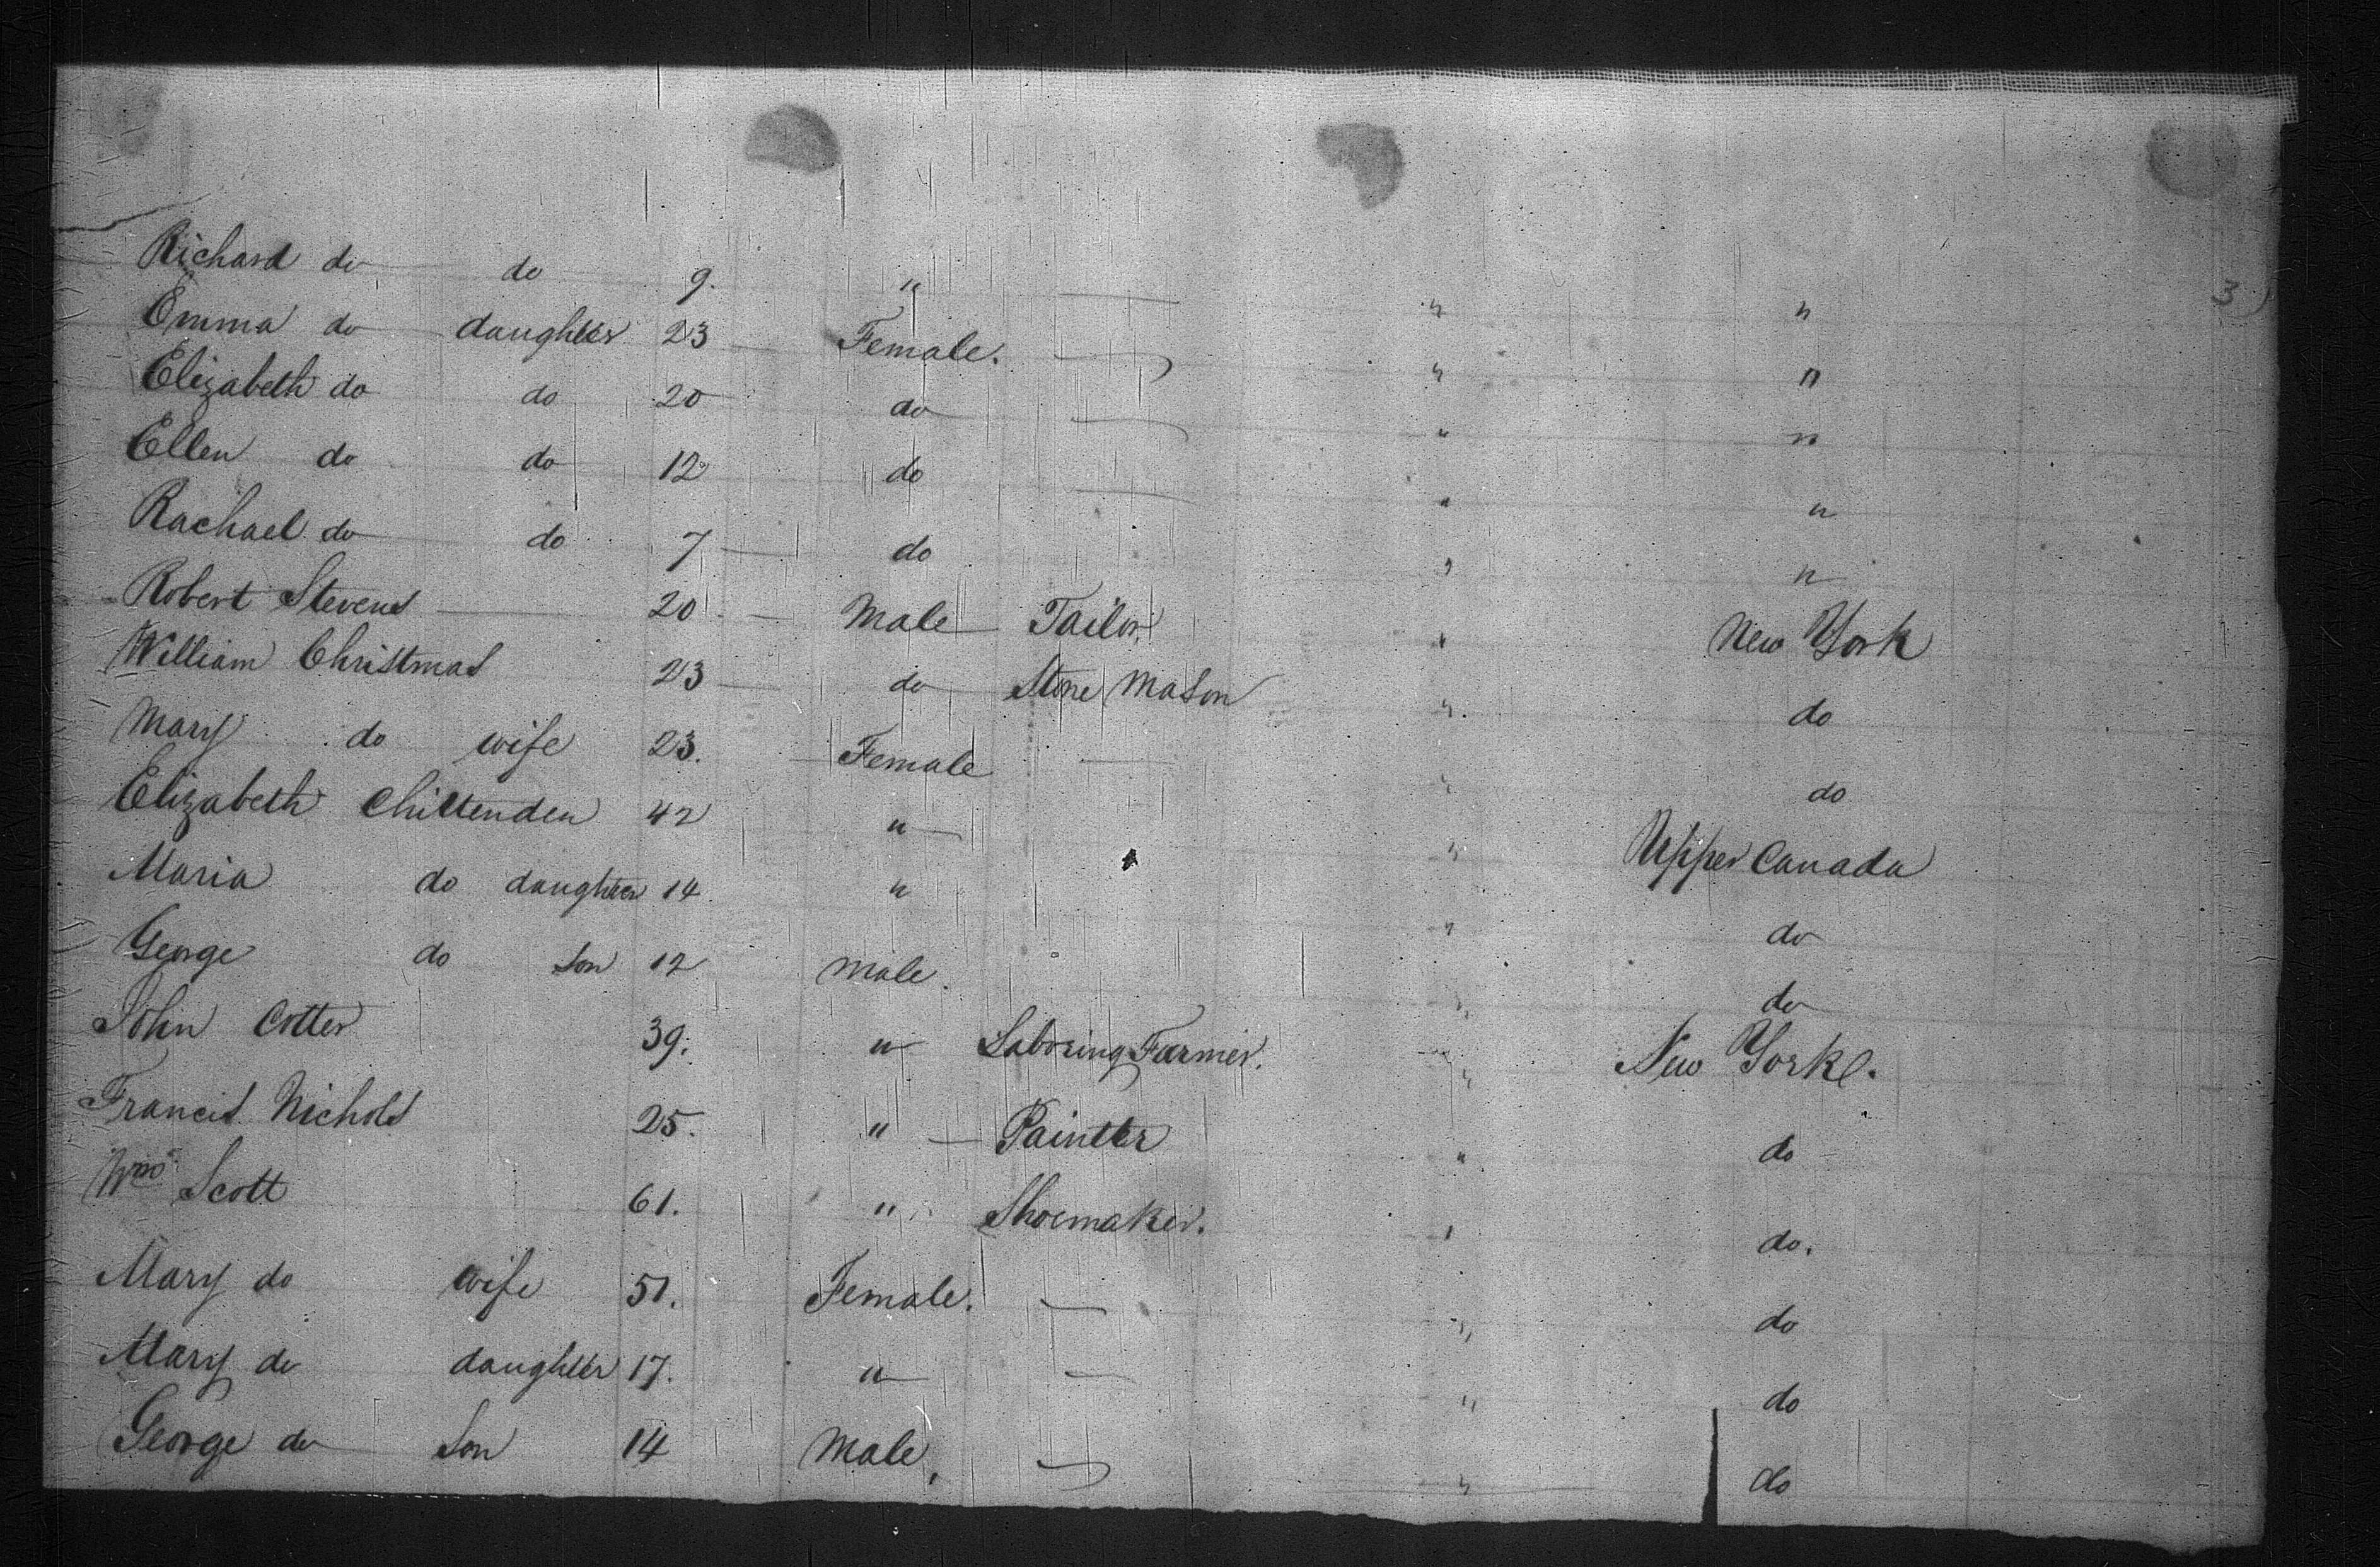 3
Richard do do 9. " " "
Emma do daughter 23 Female. " "
Elizabeth do do 20 do " "
Ellen do do 12 do " "
Rachael do do 7 do " "
Robert Stevens 20 Male Tailor " New York
William Christmas 23 do Stone Mason " do
Mary do wife 23. Female " do
Elizabeth Chittenden 42 " " Upper Canada
Maria do daughter 14 " " do
George do son 12 male. " do
John Cotter 39. " Laboring Farmer. " New York.
Francis Nichols 25. " Painter " do
Wm Scott 61. " Shoemaker. " do.
Mary do wife 51. Female. " do
Mary do daughter 17. " " do
George do son 14 Male, " do